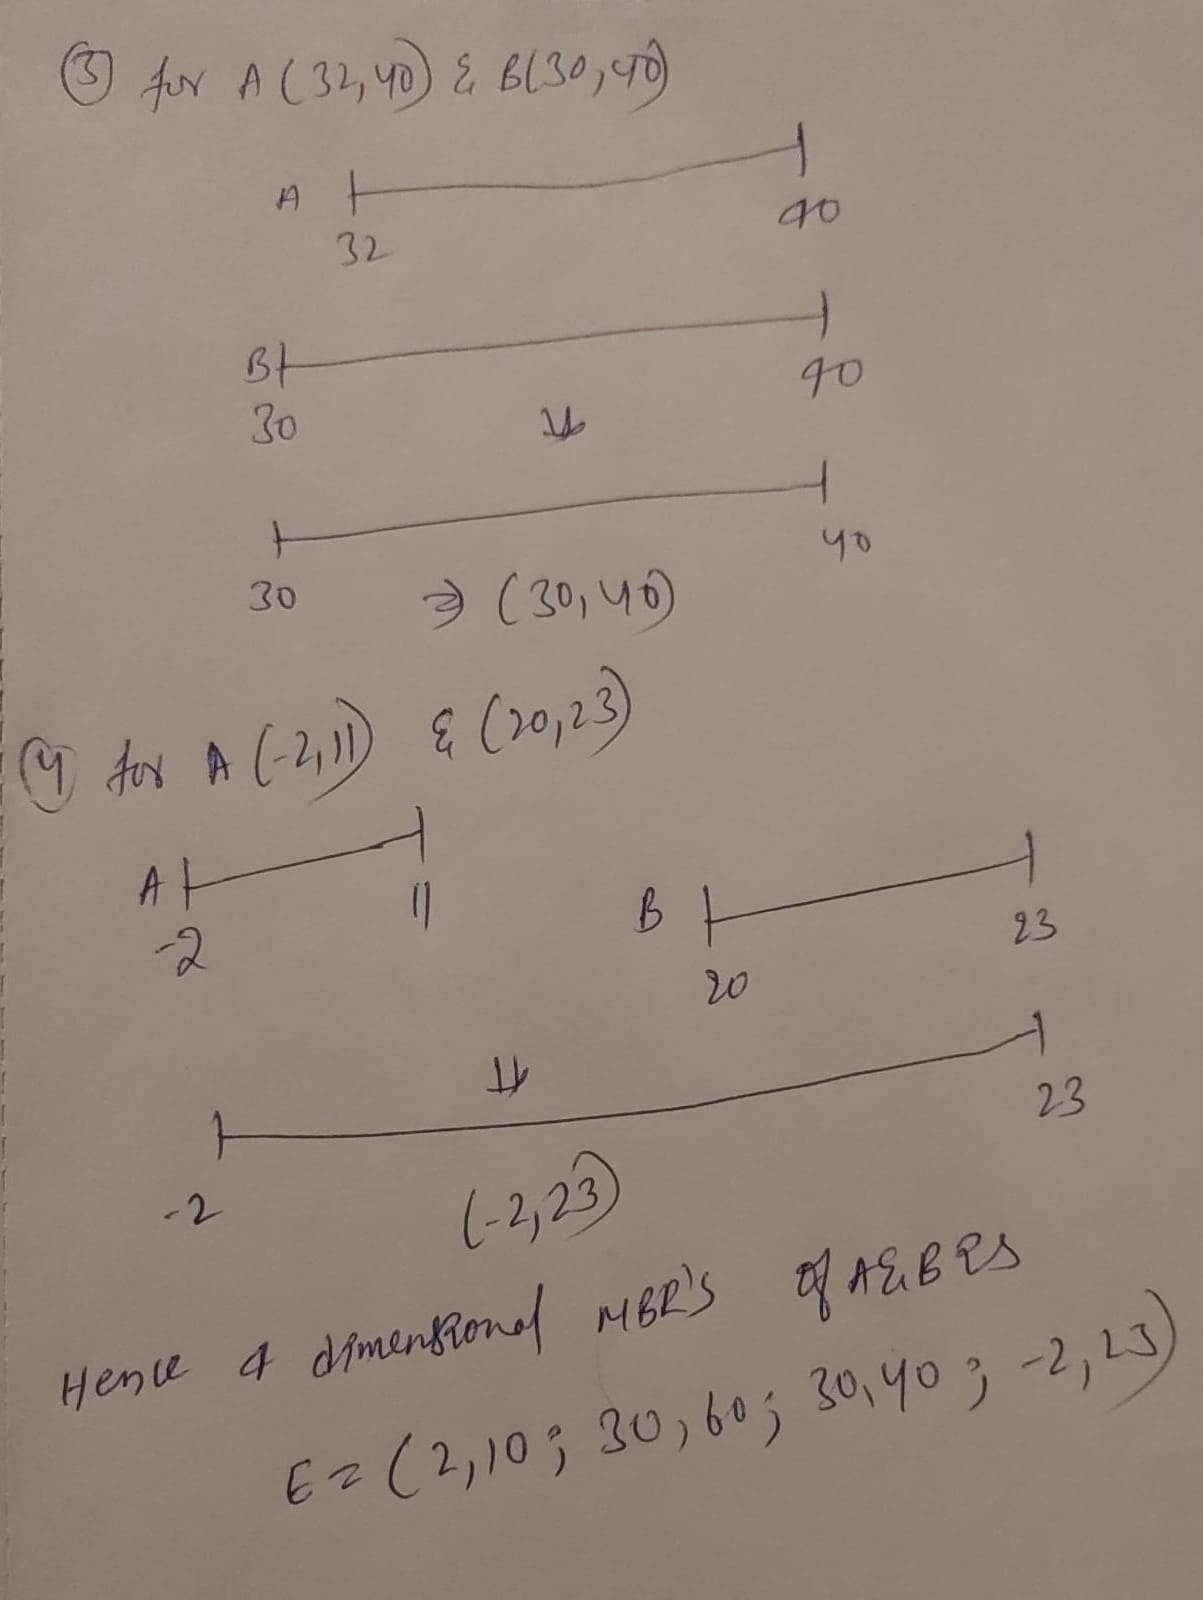 ③ for A (32,40) & B(30,40)
A
32
40
B
30
40
30
40
⇒ (30,40)
④ for A (-2,11) & (20,23)
A
-2
11
B
20
23
-2
23
(-2,23)
Hence 4 dimensional MBR's of A&B is
E = (2,10; 30,60; 30,40; -2,23)